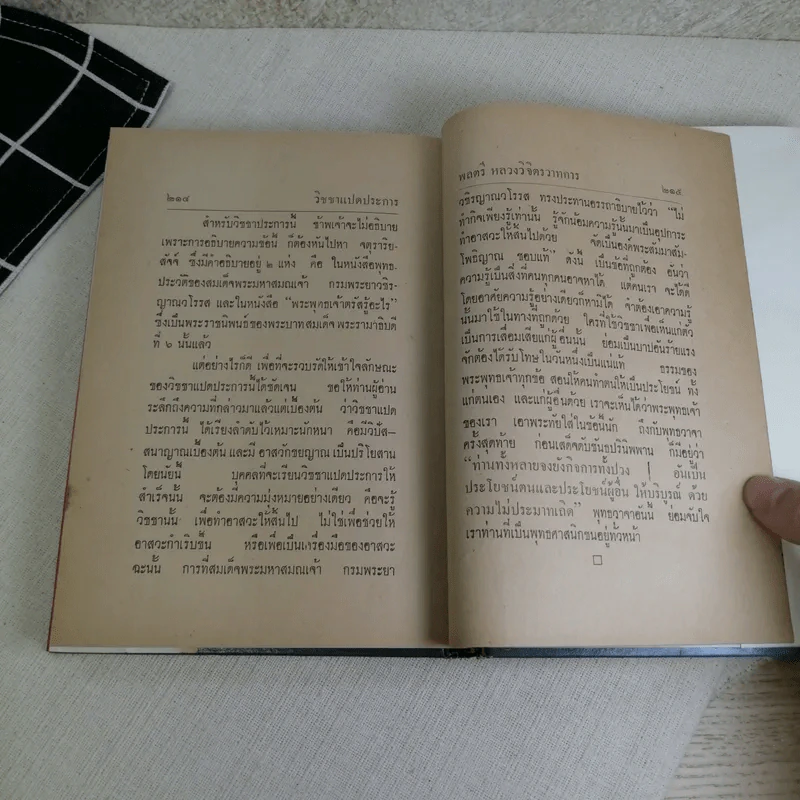 ๒๑๔ วิชชาแปดประการ
สำหรับวิชชาประการนี้ ข้าพเจ้าจะไม่อธิบาย
เพราะการอธิบายความข้อนี้ ก็ต้องหันไปหา จตุราริย-
สัจจ์ ซึ่งมีคำอธิบายอยู่ ๒ แห่ง คือ ในหนังสือพุทธ-
ประวัติของสมเด็จพระมหาสมณเจ้า กรมพระยาวชิร-
ญาณวโรรส และในหนังสือ “พระพุทธเจ้าตรัสรู้อะไร”
ซึ่งเป็นพระราชนิพนธ์ของพระบาทสมเด็จ พระรามาธิบดี
ที่ ๖ นั้นแล้ว
แต่อย่างไรก็ดี เพื่อที่จะรวบรัดให้เข้าใจลักษณะ
ของวิชชาแปดประการนี้ได้ชัดเจน ขอให้ท่านผู้อ่าน
ระลึกถึงความที่กล่าวมาแล้วแต่เบื้องต้น ว่าวิชชาแปด
ประการนี้ ได้เรียงลำดับไว้เหมาะนักหนา คือมีวิปัส-
สนาญาณเบื้องต้น และมี อาสวักขยญาณ เป็นปริโยสาน
โดยนัยนี้ บุคคลที่จะเรียนวิชชาแปดประการให้
สำเร็จนั้น จะต้องมีความมุ่งหมายอย่างเดียว คือจะรู้
วิชชานั้น เพื่อทำอาสวะให้สิ้นไป ไม่ใช่เพื่อช่วยให้
อาสวะกำเริบขึ้น หรือเพื่อเป็นเครื่องมือของอาสวะ
ฉะนั้น การที่สมเด็จพระมหาสมณเจ้า กรมพระยา
พลตรี หลวงวิจิตรวาทการ ๒๑๕
วชิรญาณวโรรส ทรงประทานอรรถาธิบายไว้ว่า “ไม่
ทำกิจเพียงรู้เท่านั้น รู้จักน้อมความรู้นั้นมาเป็นอุปการะ
ทำอาสวะให้สิ้นไปด้วย จัดเป็นองค์พระสัมมาสัม-
โพธิญาณ ชอบแท้” ดังนี้ เป็นข้อที่ถูกต้อง อันว่า
ความรู้เป็นสิ่งที่คนทุกคนอาจหาได้ แต่คนเรา จะได้ดี
โดยอาศัยความรู้อย่างเดียวก็หามิได้ จำต้องเอาความรู้
นั้นมาใช้ในทางที่ถูกด้วย ใครที่ใช้วิชชาเพื่อเห็นแก่ตัว
เป็นการเสื่อมเสียแก่ผู้อื่นนั้น ย่อมเป็นบาปอันร้ายแรง
จักต้องได้รับโทษในวันหนึ่งเป็นแน่แท้ ธรรมของ
พระพุทธเจ้าทุกข้อ สอนให้คนทำตนให้เป็นประโยชน์ ทั้ง
แก่ตนเอง และแก่ผู้อื่นด้วย เราจะเห็นได้ว่าพระพุทธเจ้า
ของเรา เอาพระทัยใส่ในข้อนี้นัก ถึงกับพุทธวาจา
ครั้งสุดท้าย ก่อนเสด็จดับขันธปรินิพพาน ก็มีอยู่ว่า
“ท่านทั้งหลายจงยังกิจการทั้งปวง อันเป็น
ประโยชน์ตนและประโยชน์ผู้อื่น ให้บริบูรณ์ ด้วย
ความไม่ประมาทเถิด” พุทธวาจาอันนี้ ย่อมจับใจ
เราท่านที่เป็นพุทธศาสนิกชนอยู่ทั่วหน้า